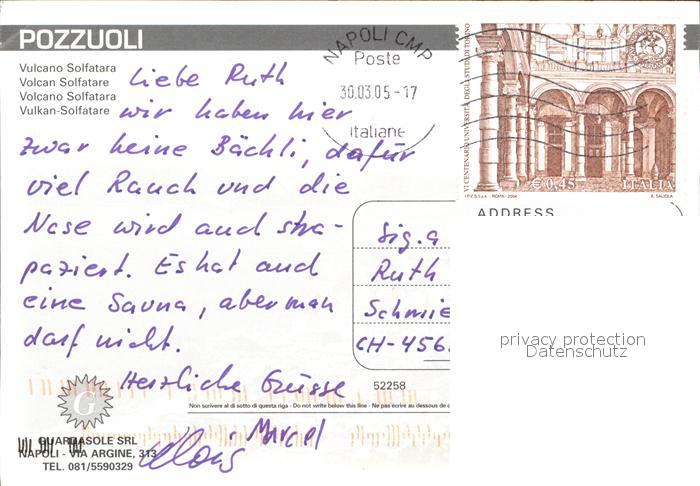 POZZUOLI
Vulcano Solfatara
Volcan Solfatare
Volcano Solfatara
Vulkan-Solfatare
Liebe Ruth
wir haben hier
zwar keine Bächli, dafür
viel Rauch und die
Nase wird auch stra-
paziert. Es hat auch
eine Sauna, aber man
darf nicht.
Herzliche Grüsse
Marcel
Alois
NAPOLI CMP
Poste
30.03.05-17
Italiane
VI CENTENARIO UNIVERSITÀ DEGLI STUDI DI TORINO
€ 0,45 ITALIA
I.P.Z.S. S.p.A. - ROMA - 2004
ADDRESS
Sig.a
Ruth
Schmie
CH-456
privacy protection
Datenschutz
52258
Non scrivere al di sotto di questa riga - Do not write below this line - Ne pas écrire au dessous de
G
GUARDASOLE SRL
NAPOLI - VIA ARGINE, 313
TEL. 081/5590329